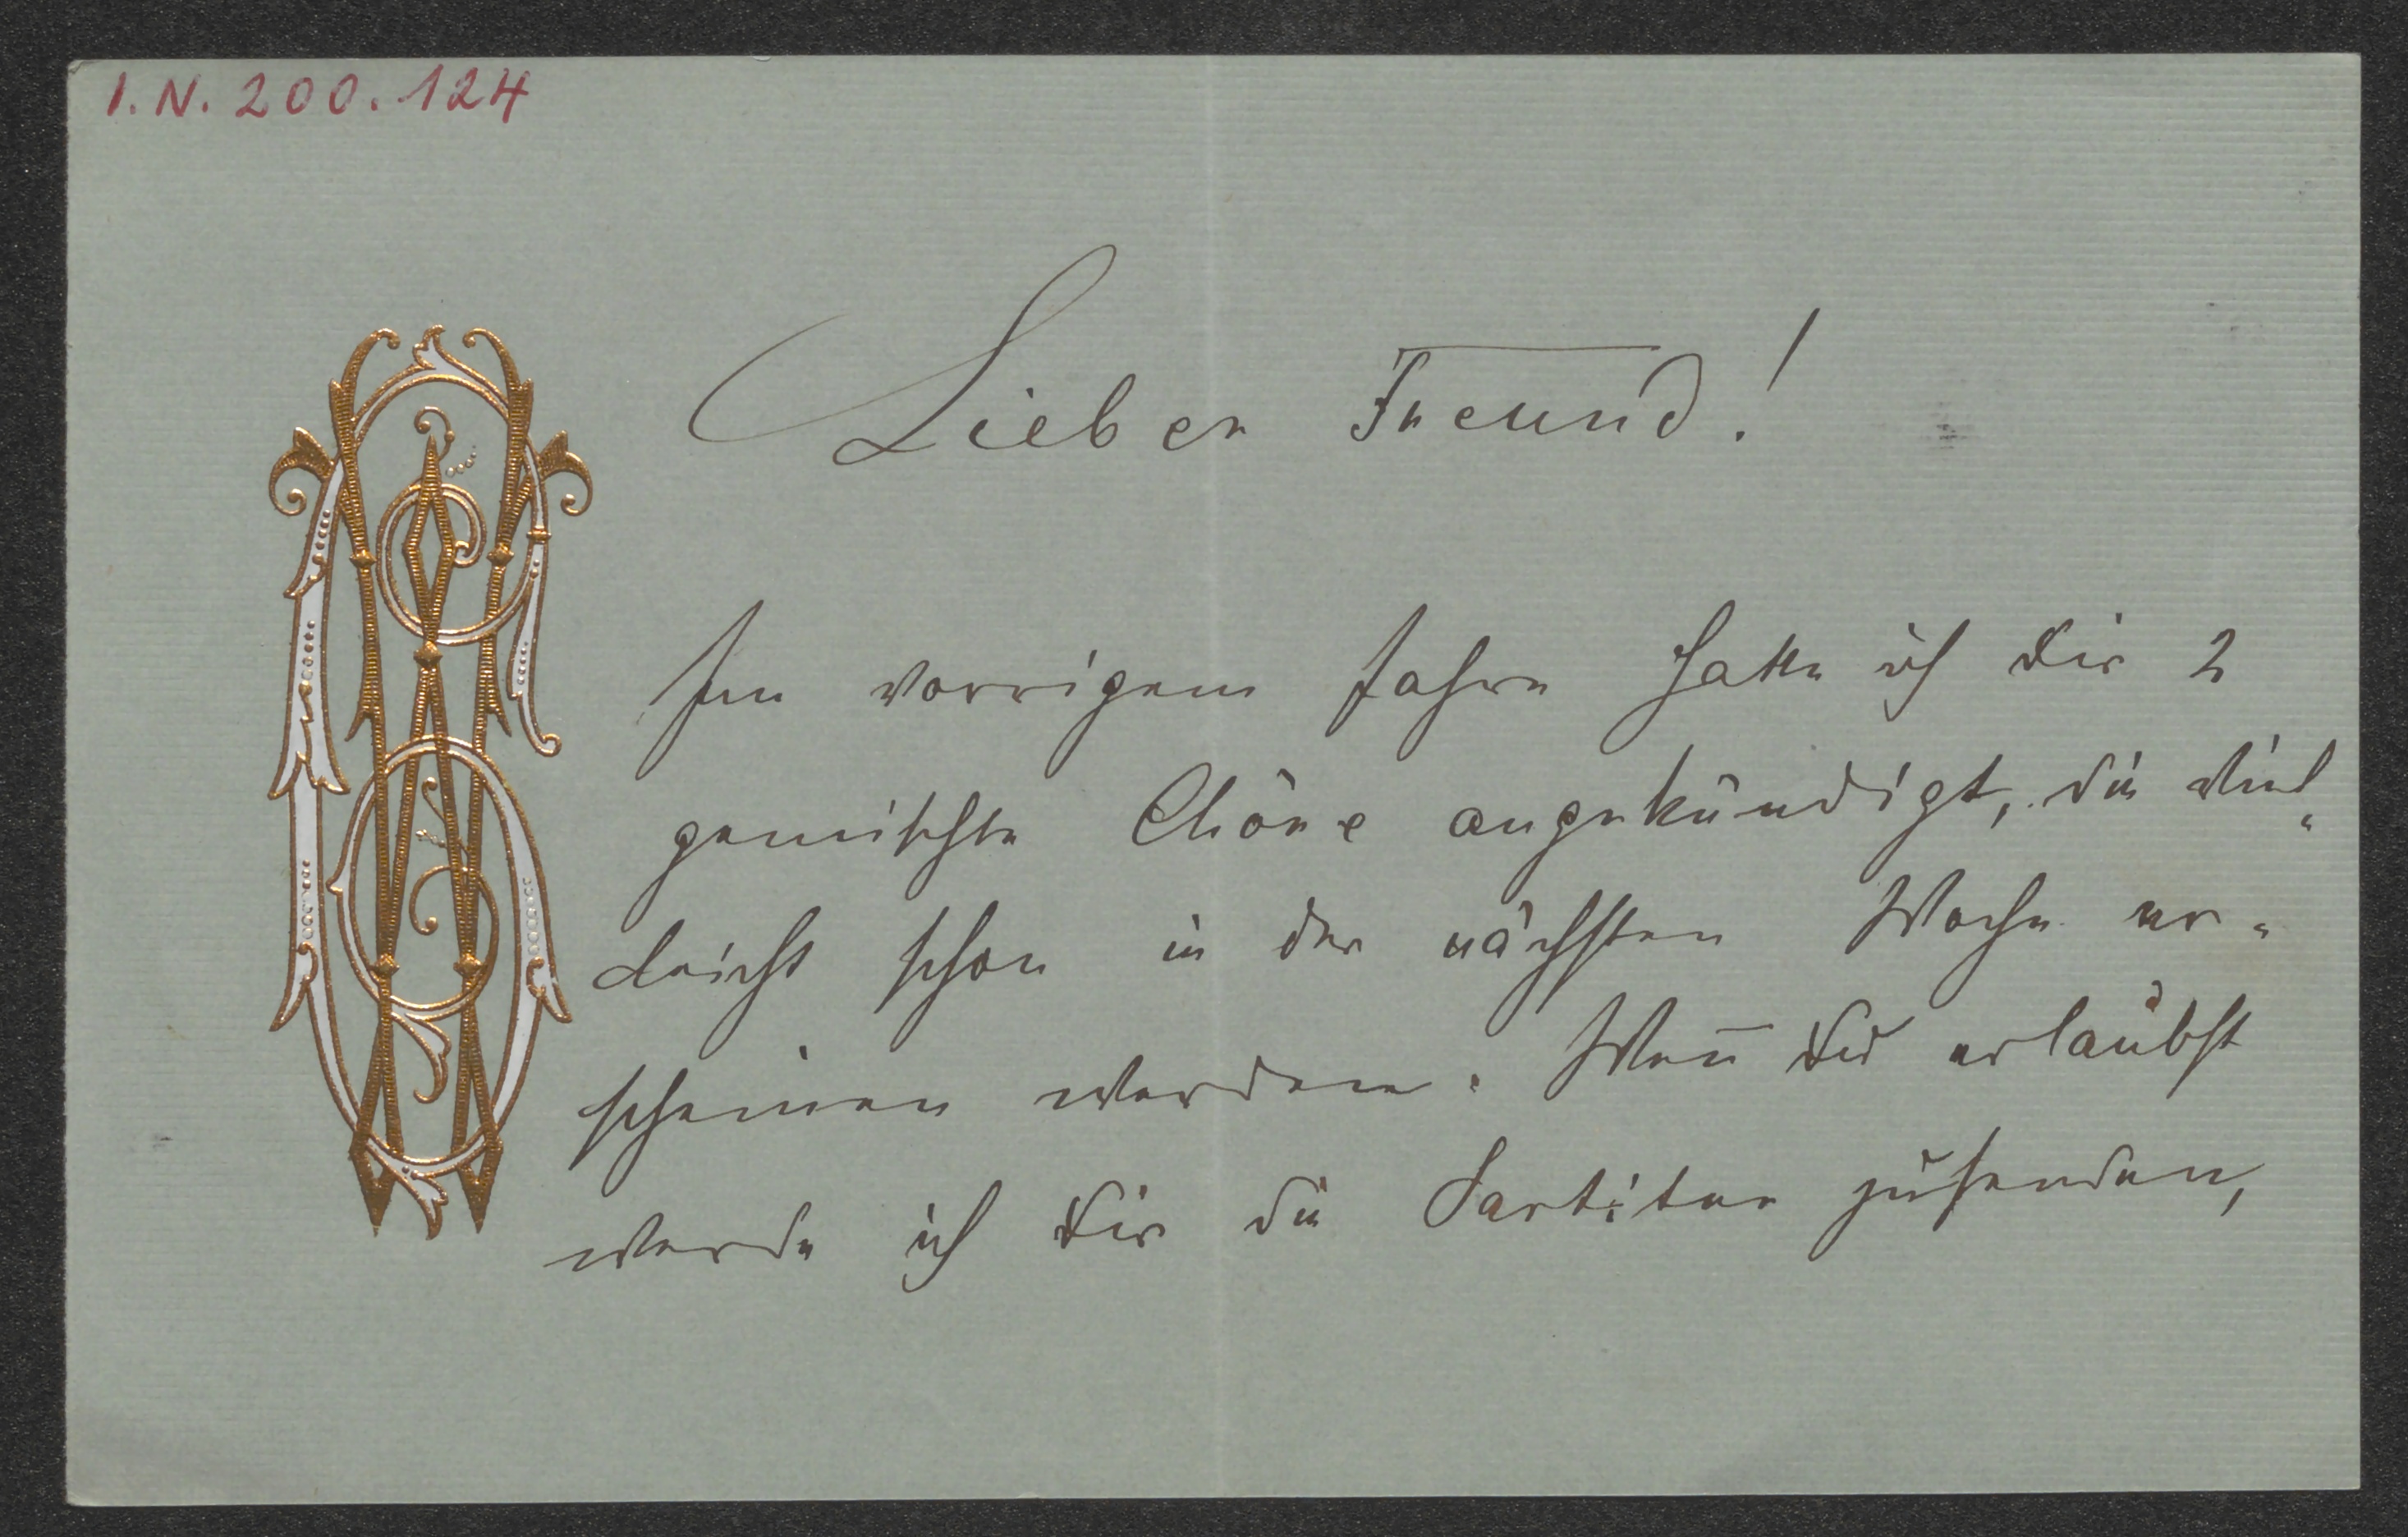 I.N. 200.124
Lieber Freund!
Im vorrigem Jahre hatte ich Dir 2
gemischte Chöre angekündigt, die viel-
leicht schon in der nächsten Woche er-
scheinen werden. Wen̄ Du erlaubst
werde ich Dir die Partitur zusenden,